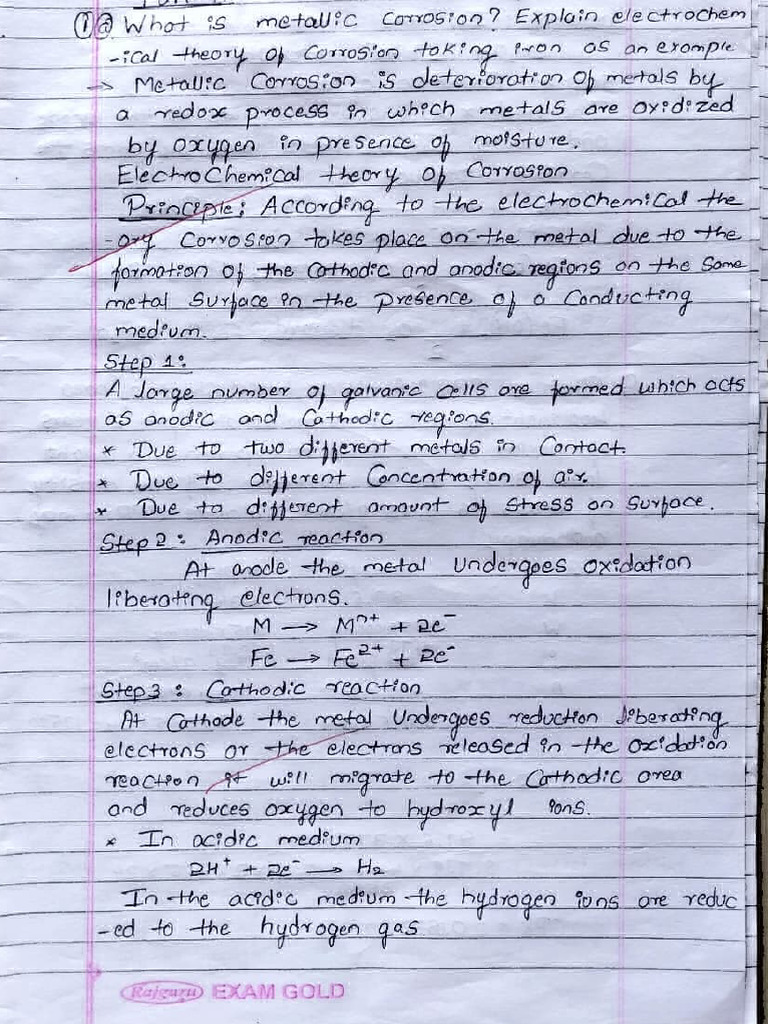 1 a What is metallic corrosion? Explain electrochem
-ical theory of Corrosion taking iron as an example
→ Metallic Corrosion is deterioration of metals by
a redox process in which metals are oxidized
by oxygen in presence of moisture.
ElectroChemical theory of Corrosion
Principle: According to the electrochemical the
-ory Corrosion takes place on the metal due to the
formation of the Cathodic and anodic regions on the same
metal Surface in the presence of a Conducting
medium.
Step 1:
A large number of galvanic cells are formed which acts
as anodic and Cathodic regions.
* Due to two different metals in Contact.
* Due to different Concentration of air.
* Due to different amount of stress on Surface.
Step 2: Anodic reaction
At anode the metal Undergoes oxidation
liberating electrons.
M → Mⁿ⁺ + 2e⁻
Fe → Fe²⁺ + 2e⁻
Step 3: Cathodic reaction
At Cathode the metal Undergoes reduction liberating
electrons or the electrons released in the oxidation
reaction it will migrate to the Cathodic area
and reduces oxygen to hydroxyl ions.
* In acidic medium
2H⁺ + 2e⁻ → H₂
In the acidic medium the hydrogen ions are reduc
-ed to the hydrogen gas
Rajguru EXAM GOLD